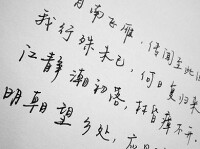 月南飞雁，传闻至此回
我行殊未已，何日复归来
江静潮初落，林昏瘴不开
明朝望乡处，应见